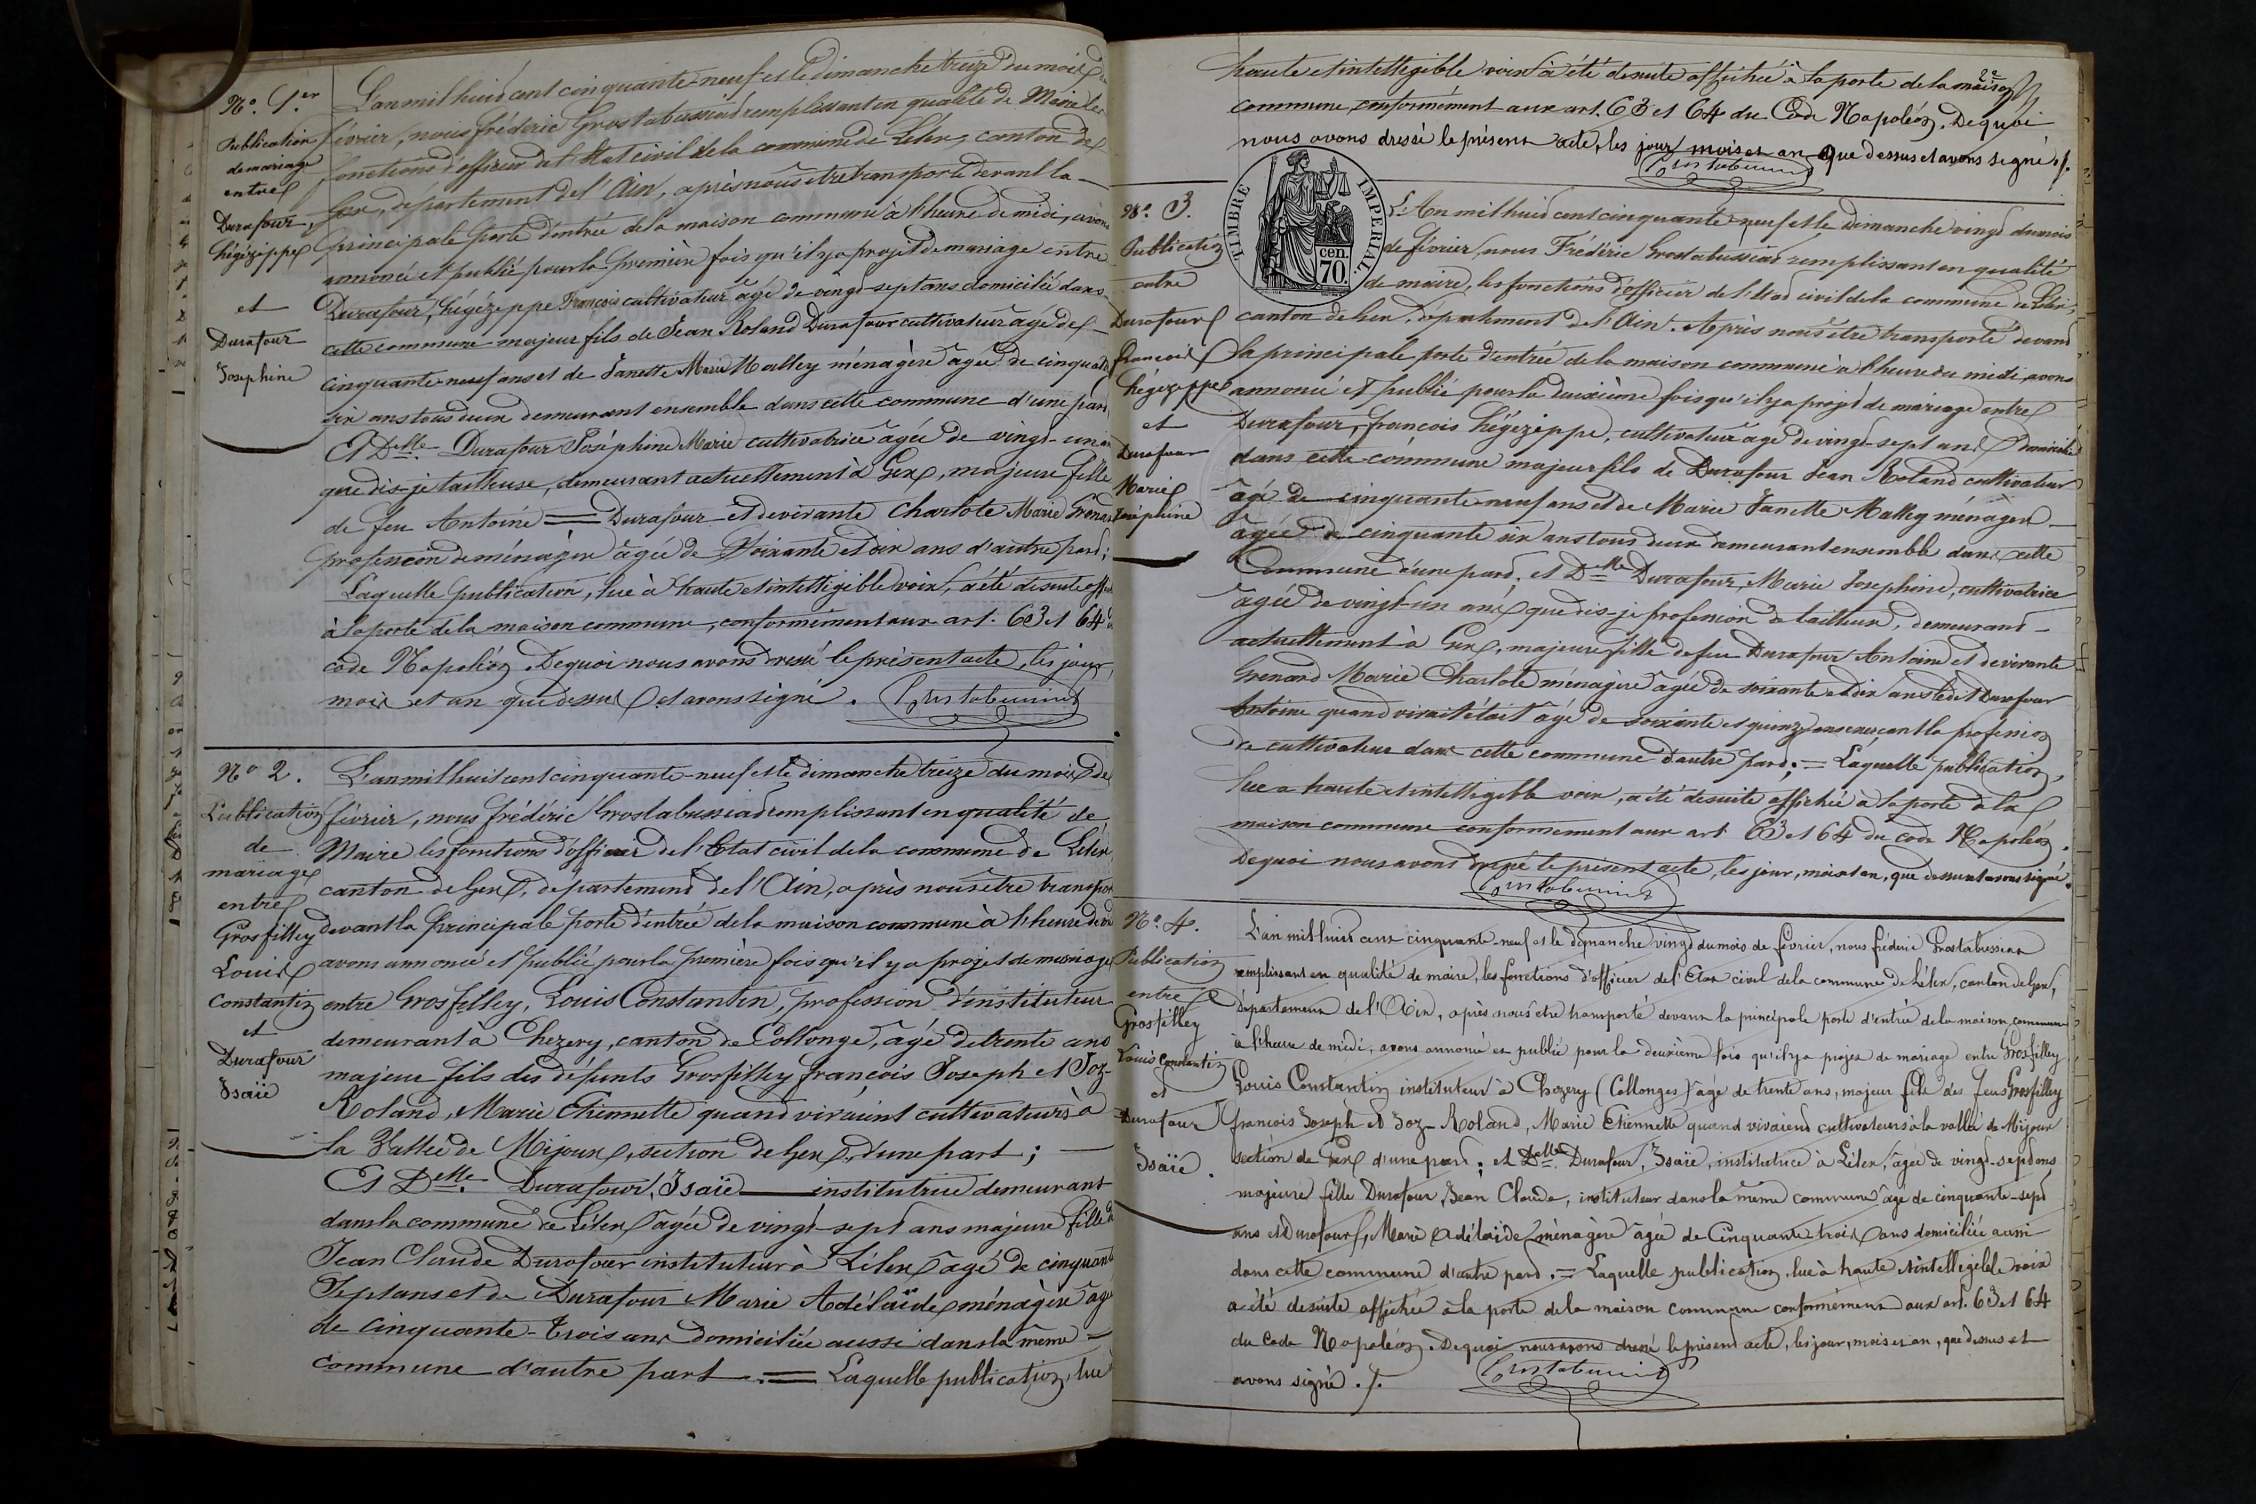 N.º 1.er
Publication
de mariage
entre
Durafour
hégézippe
et
Durafour
Josephine
L'an mil huit cent cinquante-neuf et le dimanche treize du mois de
février, nous frédéric Grostabussiat remplissant en qualité de Maire les
fonctions d'officier de l'Etat civil de la commune de Lélex, canton de
Gex, département de l'Ain, après nous être transporté devant la
principale porte d'entrée de la maison commune à l'heure de midi, avons
annoncé et publié pour la première fois qu'il y a projet de mariage entre
Durafour, hégézippe François cultivateur âgé de vingt-sept ans domicilié dans
cette commune majeur fils de Jean Roland Durafour cultivateur âgé de
cinquante-neuf ans et de Janette Marie Malley ménagère âgée de cinquante
six ans tous deux demeurant ensemble dans cette commune d'une part
Et Delle Durafour Joséphine Marie cultivatrice âgée de vingt-un an
que dis-je tailleuse, demeurant actuellement à Gex, majeure fille
de feu Antoine = Durafour et de vivante Charlote Marie Grenard
profession de ménagère âgée de Soixante et dix ans d'autre part;
Laquelle publication, lue à haute et intelligible voix, a été de suite
à la porte de la maison commune, conformément aux art. 63 et 64 du
code Napoléon. De quoi nous avons dressé le présent acte, les jour,
mois et an que dessus et avons signé. Grostabussiat
N.º 2.
Publication
de
mariage
entre
Grosfilley
Louis
Constantin
et
Durafour
Isaïe
L'an mil huit cent cinquante-neuf et le dimanche treize du mois de
février, nous frédéric Grostabussiat remplissant en qualité de
Maire les fonctions d'officier de l'Etat civil de la commune de Lélex
canton de Gex, département de l'Ain, après nous être transporté
devant la Principale porte d'entrée de la maison commune à l'heure de midi
avons annoncé et publié pour la première fois qu'il y a projet de mariage
entre Grosfilley, Louis Constantin, profession d'instituteur
demeurant à Chezery, canton de Collonge, âgé de trente ans
majeur fils des défunts Grosfilley françois Joseph et Joz-
Roland, Marie Etiennette quand vivaient cultivateurs à
la Vallée de Mijoux, section de Gex, d'une part;
Et Delle Durafour, Isaïe institutrice demeurant
dans la commune de Lélex âgée de vingt-sept ans majeure fille de
Jean Claude Durafour instituteur à Lélex âgé de cinquante
Sept ans et de Durafour Marie Adélaïde ménagère âgée
de cinquante-trois ans domiciliée aussi dans la même =
commune d'autre part .= Laquelle publication, lue
haute et intelligible voix à été de suite affichée à la porte de la maison
commune, conformément aux art. 63 et 64 du Code Napoléon. De quoi
nous avons dressé le présent acte, les jour mois et an que dessus et avons signé./.
Grostabussiat
TIMBRE IMPERIAL.
cen.
70.
N.º 3.
Publication
entre
Durafour
françois
hégézippe
et
Durafour
Marie
Joséphine
L'An mil huit cent cinquante-neuf et le dimanche vingt du mois
de février, nous Frédéric Grostabussiat remplissant en qualité
de maire, les fonctions d'officier de l'Etat civil de la commune de Lélex,
canton de Gex, département de l'Ain. Après nous être transporté devant
la principale porte d'entrée de la maison commune à l'heure du midi, avons
annoncé et publié pour la deuxième fois qu'il y a projet de mariage entre
Durafour, françois hégézippe, cultivateur âgé de vingt-sept ans domicilié
dans cette commune majeur fils de Durafour Jean Roland cultivateur
âgé de cinquante-neuf ans et de Marie Janette Malley ménagère
âgée de cinquante six ans tous deux demeurant ensemble dans cette
Commune d'une part; et Delle Durafour, Marie Josephine, cultivatrice
âgée de vingt-un ans que dis-je profession de tailleuse, demeurant
actuellement à Gex, majeure fille de feu Durafour Antoine et de vivante
Grenard Marie Charlote ménagère âgée de soixante et dix ans ledit Durafour
Antoine quand vivait était âgé de soixante et quinze ans exerçant la profession
de cultivateur dans cette commune d'autre part; = Laquelle publication,
lue a haute et intelligible voix, a été de suite affichée à la porte à la
maison commune conformément aux art 63 et 64 du code Napoléon.
De quoi nous avons dressé le présent acte, les jour, mois et an, que dessus et avons signé.
Grostabussiat
N.º 4.
Publication
entre
Grosfilley
Louis Constantin
et
Durafour
Isaïe.
L'an mil huit cent cinquante-neuf et le dimanche vingt du mois de février, nous frédéric Grostabussiat
remplissant en qualité de maire, les fonctions d'officier de l'Etat civil de la commune de Lélex, canton de Gex,
département de l'Ain, après nous être transporté devant la principale porte d'entrée de la maison commune
à l'heure de midi, avons annoncé et publié pour la deuxième fois qu'il y a projet de mariage entre Grosfilley
Louis Constantin instituteur à Chezery (Collonges) âgé de trente ans, majeur fils des feus Grosfilley
françois Joseph et Joz-Roland, Marie Etiennette quand vivaient cultivateurs à la vallée de Mijoux
section de Gex d'une part; et Delle Durafour, Isaïe, institutrice à Lélex, âgée de vingt-sept ans
majeure fille Durafour, Jean Claude, instituteur dans la même commune âgé de cinquante-sept
ans et Durafour, Marie Adélaïde ménagère âgée de Cinquante trois ans domiciliée aussi
dans cette commune d'autre part. = Laquelle publication, lue à haute et intelligible voix
a été de suite affichée à la porte de la maison commune conformément aux art. 63 et 64
du Code Napoléon. De quoi nous avons dressé le présent acte, les jour, mois et an, que dessus et
avons signé ./.
Grostabussiat